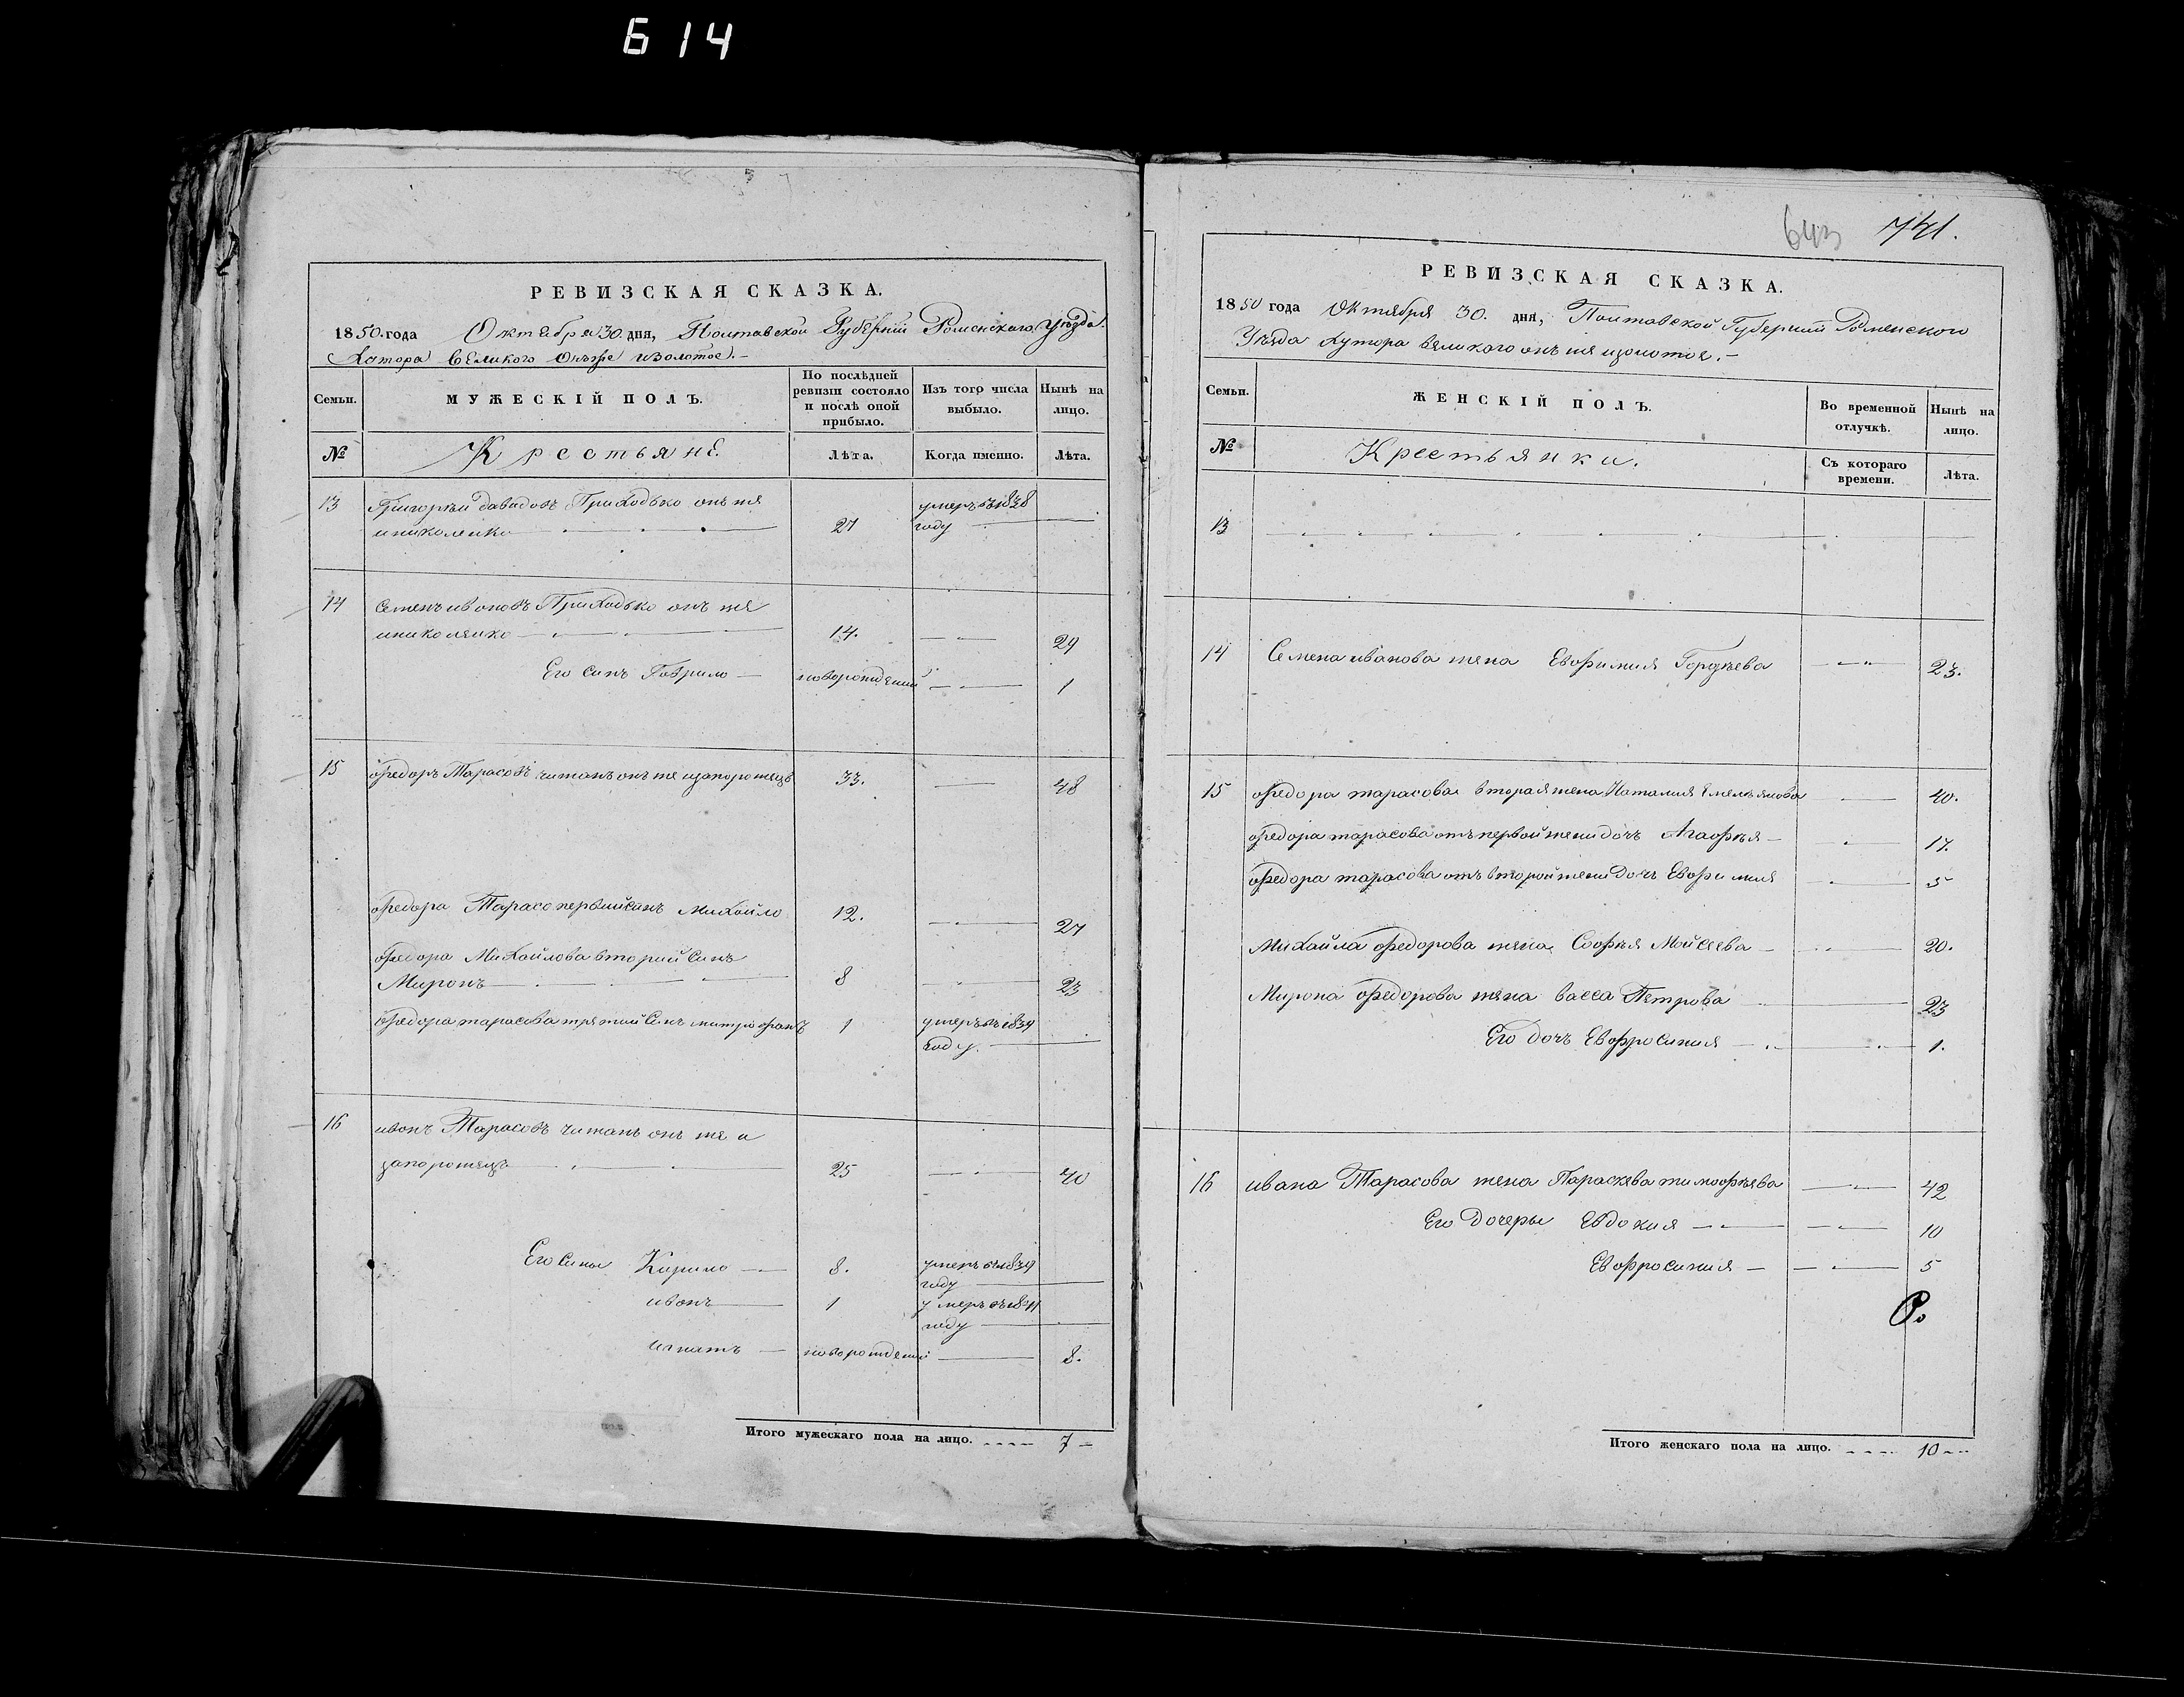 614
РЕВИЗСКАЯ СКАЗКА.
1850. года Октября 30. дня, Полтавской Губернии Роменского Уезда.
Хутора Великого Онъже изолотое.-
Семьи.
МУЖЕСКІЙ ПОЛЪ.
По послѣдней ревизіи состояло и послѣ оной прибыло.
Изъ того числа выбыло.
Нынѣ на лицо.
№
Крестьяне
Лѣта.
Когда именно.
Лѣта.
13 Григорѣй Давидовъ Приходько онъ же 27 умеръ въ 1838
иниколенко году
14 Семенъ ивановъ Приходько онъ же
иниколенко 14. 29
Его синъ Гаврило новорожденний 1
15 Федоръ Тарасовъ читанъ онъ же изапорожецъ 33. 48
Федора Тарасо первийсинъ Михайло 12. 27
Федора Михайлова вторий синъ
Миронъ 8 23
Федора тарасова третий синъ митрофанъ 1 умеръ въ 1839
году
16 иванъ Тарасовъ читанъ онъ же и
запорожецъ 25 40
Его сины Кирило 8. умеръ въ 1839
году
иванъ 1 умеръ въ 1841
году
игнатъ новорожденний 8.
Итого мужескаго пола на лицо. 7
643 741.
РЕВИЗСКАЯ СКАЗКА.
1850 года Октября 30. дня, Полтавской Губернии Роменского
Уезда хутора великого онъ же изолотое.-
Семьи.
ЖЕНСКІЙ ПОЛЪ.
Во временной отлучкѣ.
Нынѣ на лицо.
№
Крестьянки.
Съ котораго времени.
Лѣта.
13
14 Семена иванова жена Евфимия Гордѣева 23.
15 Федора тарасова вторая жена Наталия Емельянова 40.
Федора тарасова отъ первой жени дочъ Агафѣя 17.
Федора тарасова отъ второй жени дочъ Евфимия 5
Михайла федорова жена Софѣя Мойсеева 20.
Мирона федорова жена васса Петрова 23
Его дочъ Евфросиния 1.
16 ивана Тарасова жена Параскева тимофѣева 42
Его дочеры Евдокия 10
Евфросиния 5
Итого женскаго пола на лицо. 10